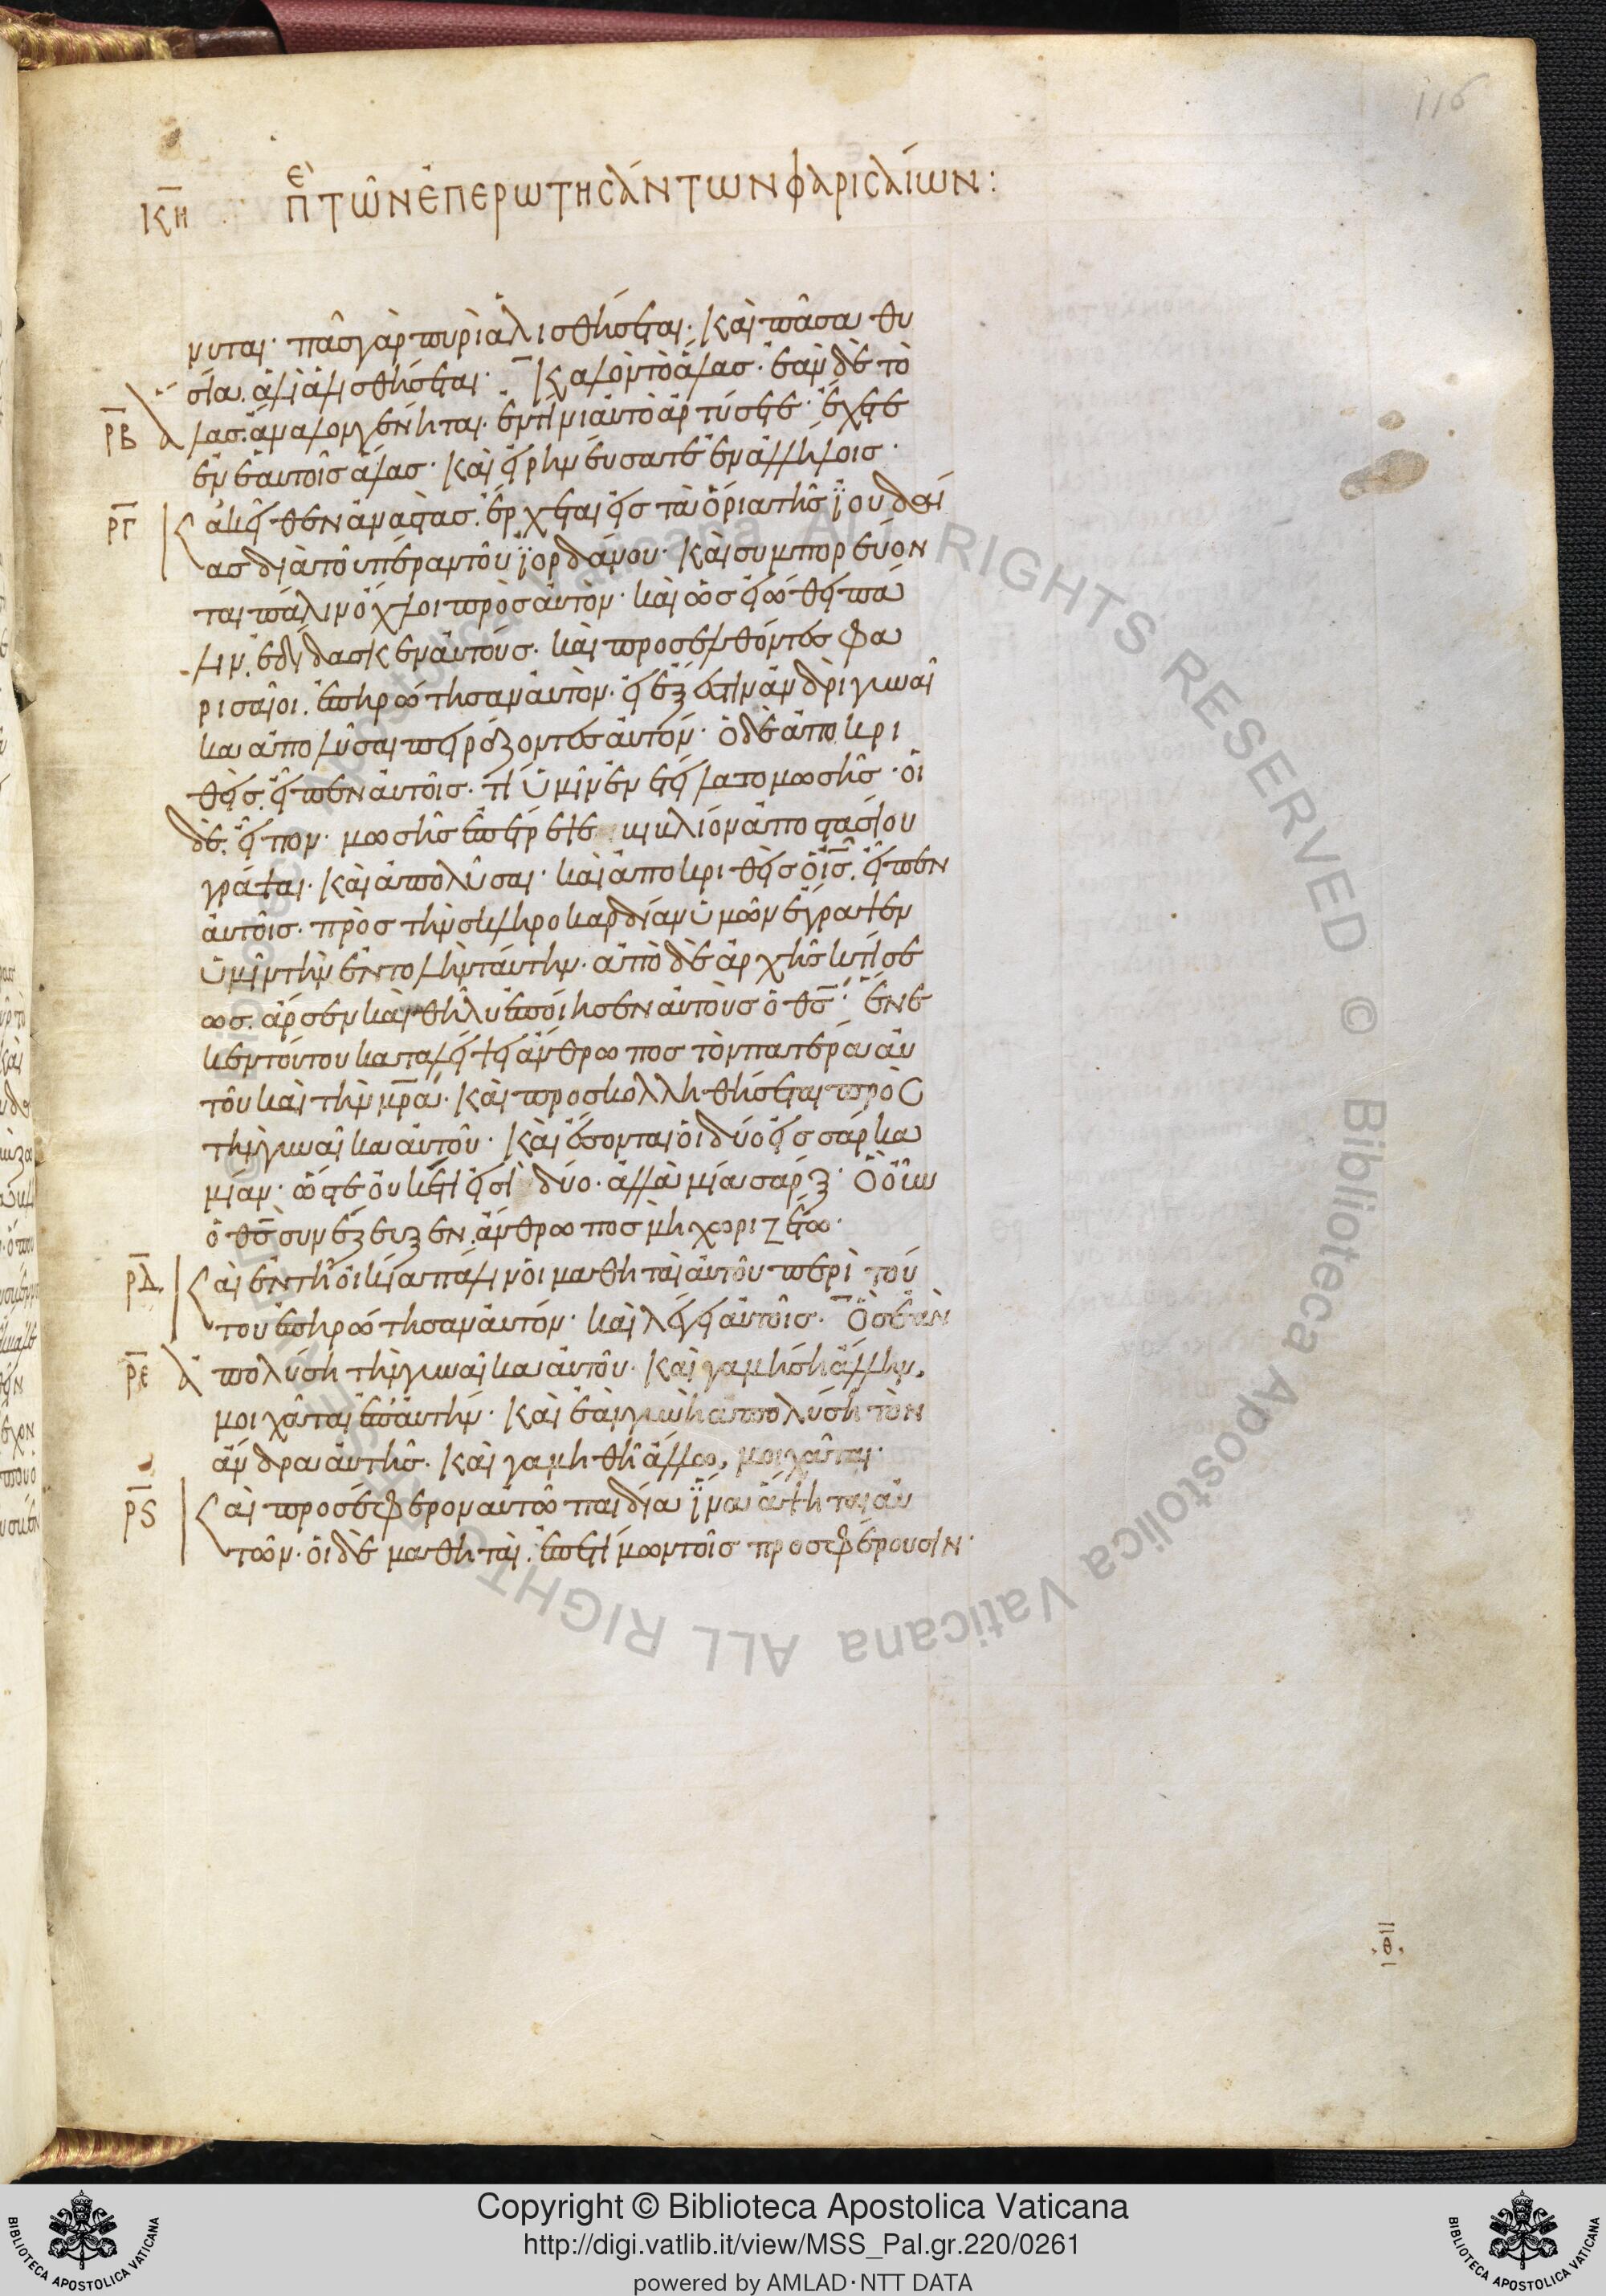 116
κη ἐπὶ τῶν ἐπερωτησάντων φαρισαίων:
νυται· πᾶς γὰρ πυρὶ ἁλισθήσεται· καὶ πᾶσα θυ
σία ἁλὶ ἁλισθήσεται· Καλὸν τὸ ἅλας· ἐὰν δὲ τὸ
ρβ ἅλας ἄναλον γένηται· ἐν τίνι αὐτὸ ἀρτύσετε· ἔχετε
ἐν ἑαυτοῖς ἅλας· καὶ εἰρηνεύσατε ἐν ἀλλήλοις·
ργ Κἀκεῖθεν ἀναστὰς ἔρχεται εἰς τὰ ὅρια τῆς ϊουδαί
ας διὰ τοῦ πέραν τοῦ ϊορδάνου· καὶ συμπορεύον
ται πάλιν ὄχλοι πρὸς αὐτόν· καὶ ὡς εἰώθει πά
λιν ἐδίδασκεν αὐτούς· καὶ προσελθόντες φα
ρισαῖοι ἐπηρώτησαν αὐτόν· εἰ ἔξεστιν ἀνδρὶ γυναῖ
κα ἀπολῦσαι πειράζοντες αὐτόν· ὁ δὲ ἀποκρι
θεὶς εἶπεν αὐτοῖς· τί ὑμῖν ἐνετείλατο μωσῆς· οἱ
δὲ εἶπον· μωσῆς ἐπέτρεψε βιβλίον ἀποστασίου
γράψαι· καὶ ἀπολῦσαι· καὶ ἀποκριθεὶς ὁ ις εἶπεν
αὐτοῖς· πρὸς τὴν σκληροκαρδίαν ὑμῶν ἔγραψεν
ὑμῖν τὴν ἐντολὴν ταύτην· ἀπὸ δὲ ἀρχῆς κτίσε
ως ἄρσεν καὶ θῆλυ ἐποίησεν αὐτοὺς ὁ θς· ἕνε
κεν τούτου καταλείψει ἄνθρωπος τὸν πατέρα αὐ
τοῦ καὶ τὴν μρα· καὶ προσκολληθήσεται πρὸς
τὴν γυναῖκα αὐτοῦ· καὶ ἔσονται οἱ δύο εἰς σάρκα
μίαν· ὥστε οὐκέτι εἰσὶ δύο· ἀλλὰ μία σάρξ· Ὃ οὖν
ὁ θς συνέζευξεν ἄνθρωπος μὴ χωριζέτω·
ρδ Καὶ ἐν τῇ οἰκία πάλιν οἱ μαθηταὶ αὐτοῦ περὶ τού
του ἐπηρώτησαν αὐτόν· καὶ λέγει αὐτοῖς· Ὃς ἐὰν
ρε ἀπολύση τὴν γυναῖκα αὐτοῦ· καὶ γαμήση ἄλλην,
μοιχᾶται ἐπ' αὐτήν· καὶ ἐὰν γυνὴ ἀπολύση τὸν
ἄνδρα αὐτῆς· καὶ γαμηθῆ ἄλλω, μοιχᾶται·
ρς Καὶ προσέφερον αὐτῶ παιδία ϊνα ἅψηται αὐ
τῶν· οἱ δὲ μαθηταὶ ἐπετίμων τοῖς προσφέρουσιν·
θ
Copyright © Biblioteca Apostolica Vaticana
http://digi.vatlib.it/view/MSS_Pal.gr.220/0261
powered by AMLAD·NTT DATA